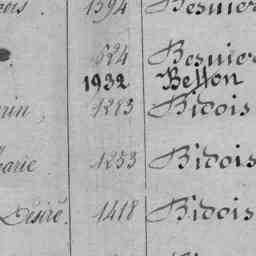 1394 Besnier
624 Besnier
1932 Betton
rin, 1283 Bidois
Marie 1253 Bidois
Désiré 1418 Bidois